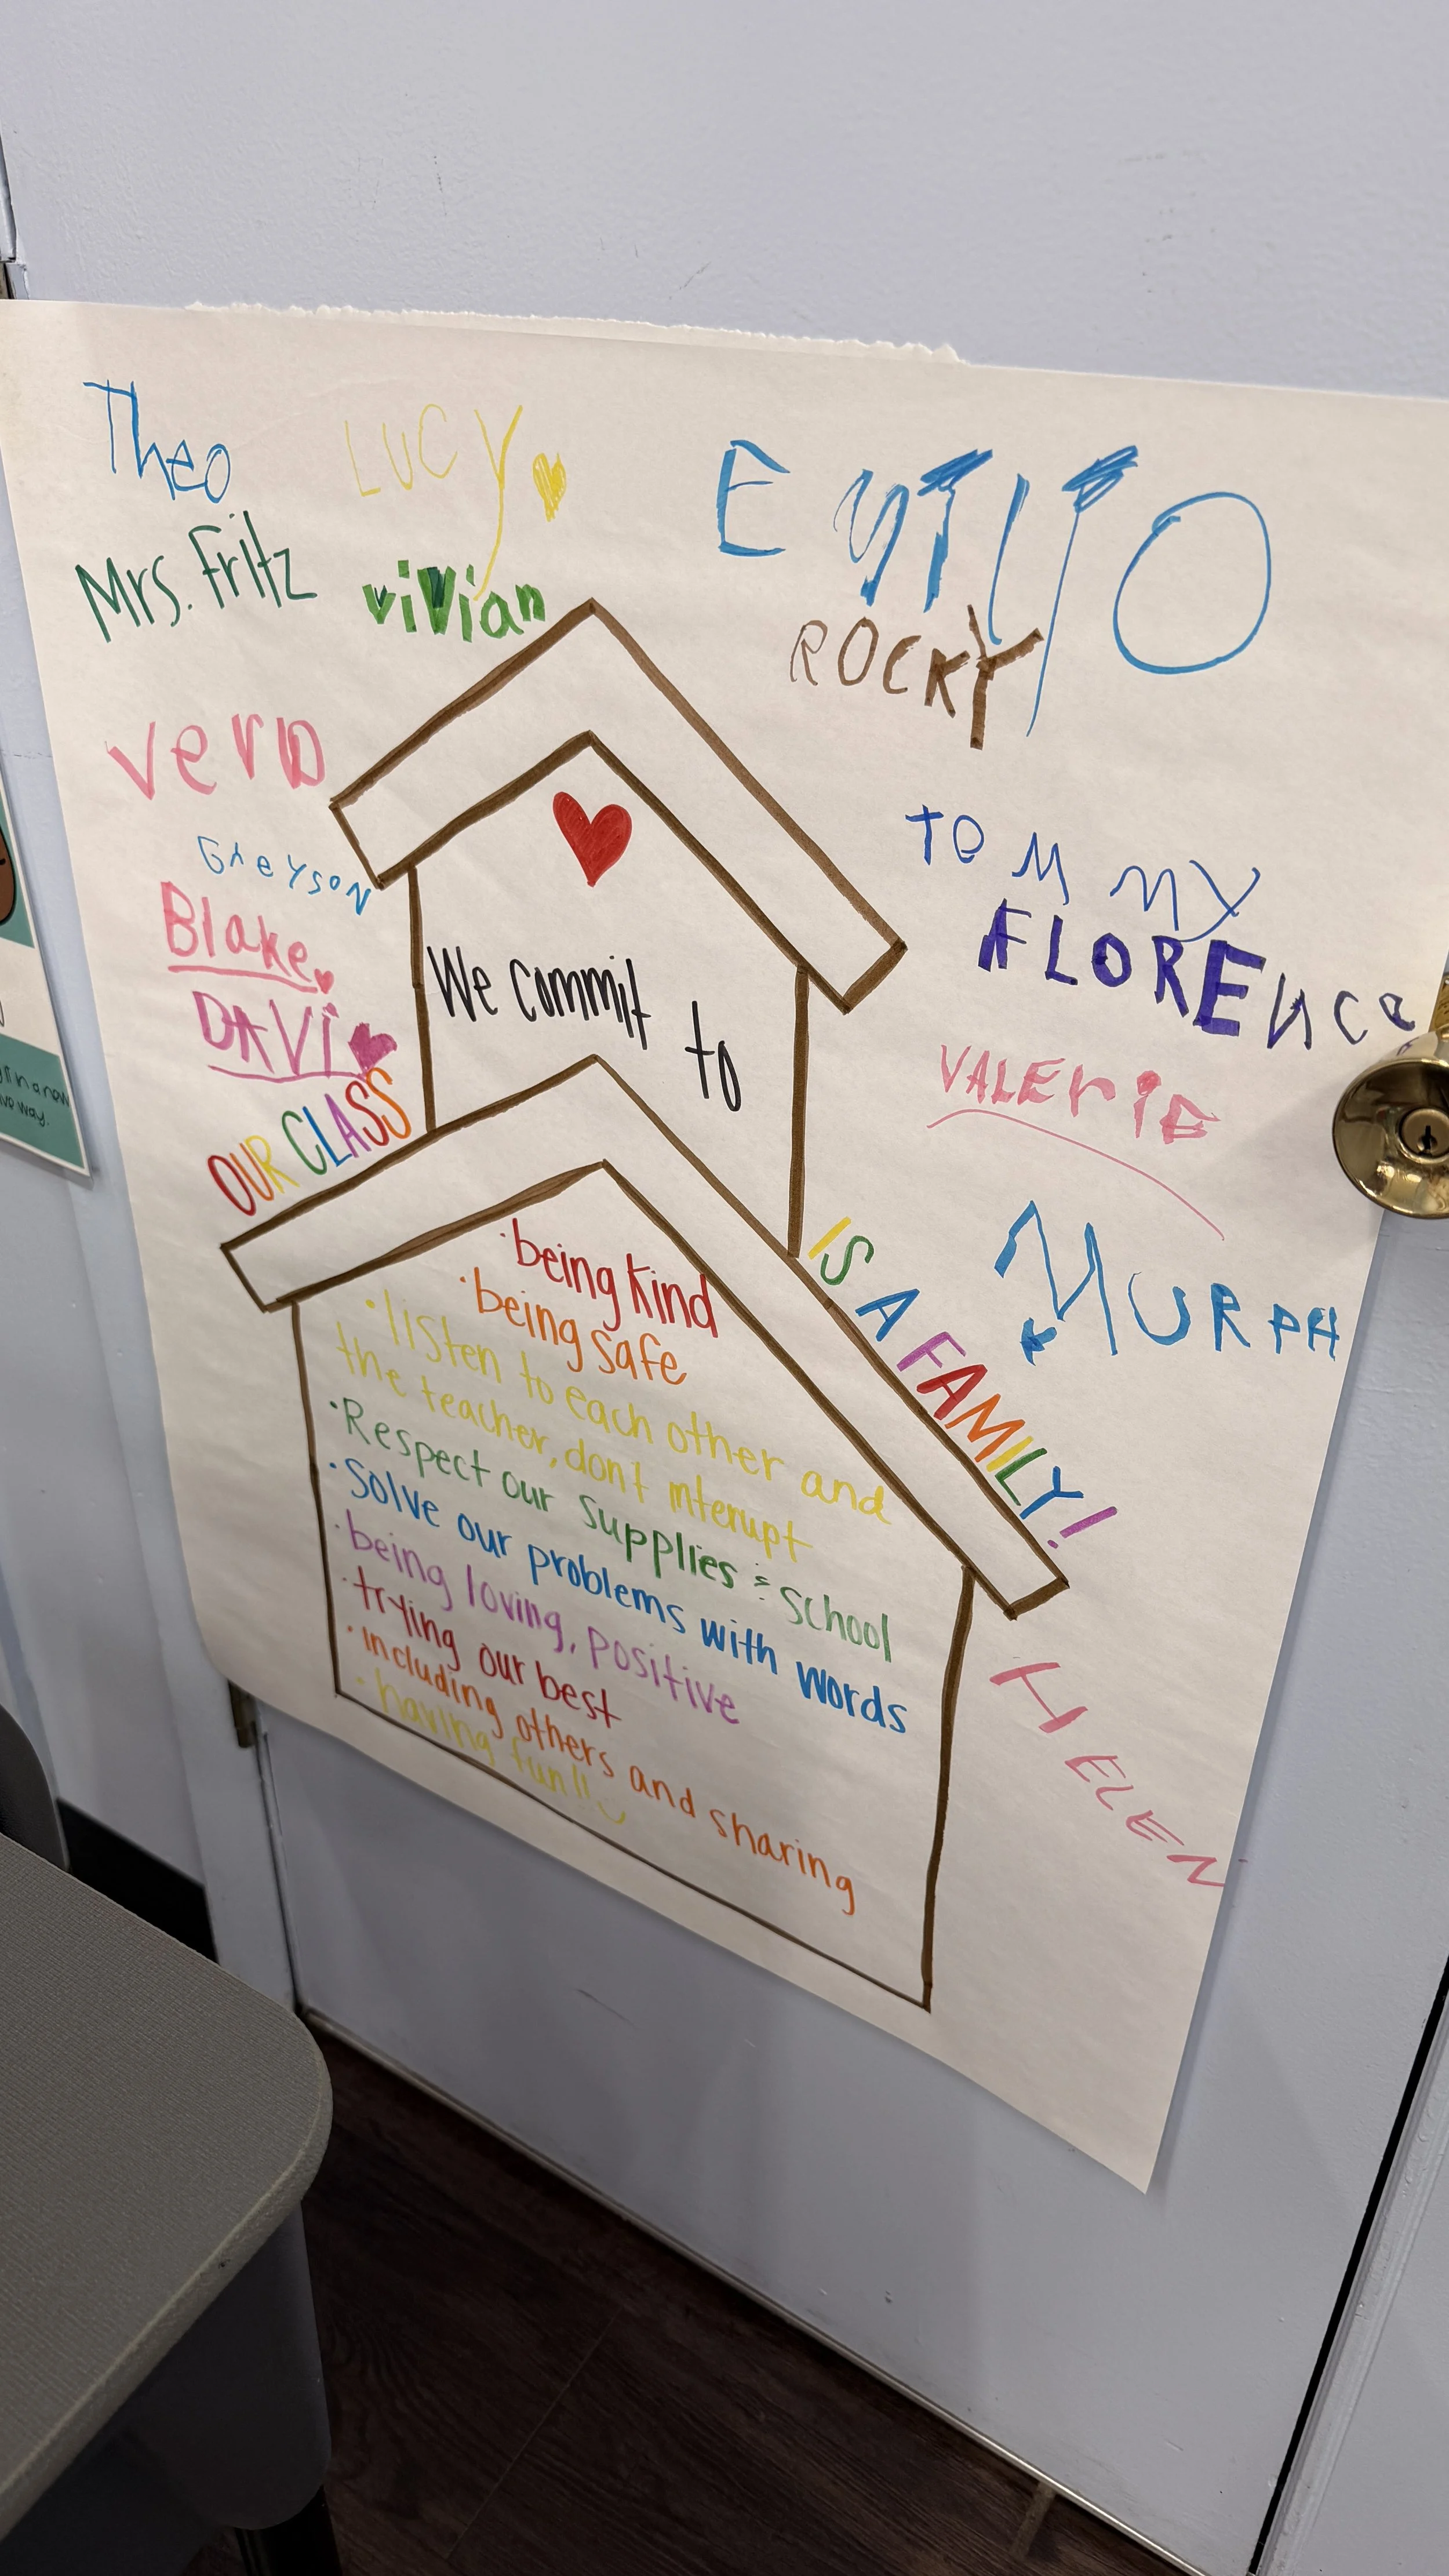 Theo
LUCY
EMILIO
Mrs. Fritz
viVian
ROCKY
vera
GreYsoN
Blake
DAVi
TOMMY
FLORENce
VALErie
MURPH
HELEN
We commit to
OUR CLASS IS A FAMILY!
·being kind
·being safe
·listen to each other and
the teacher, don't interupt
·Respect our supplies & school
·Solve our problems with words
·being loving, positive
·trying our best
·including others and sharing
·having fun!!